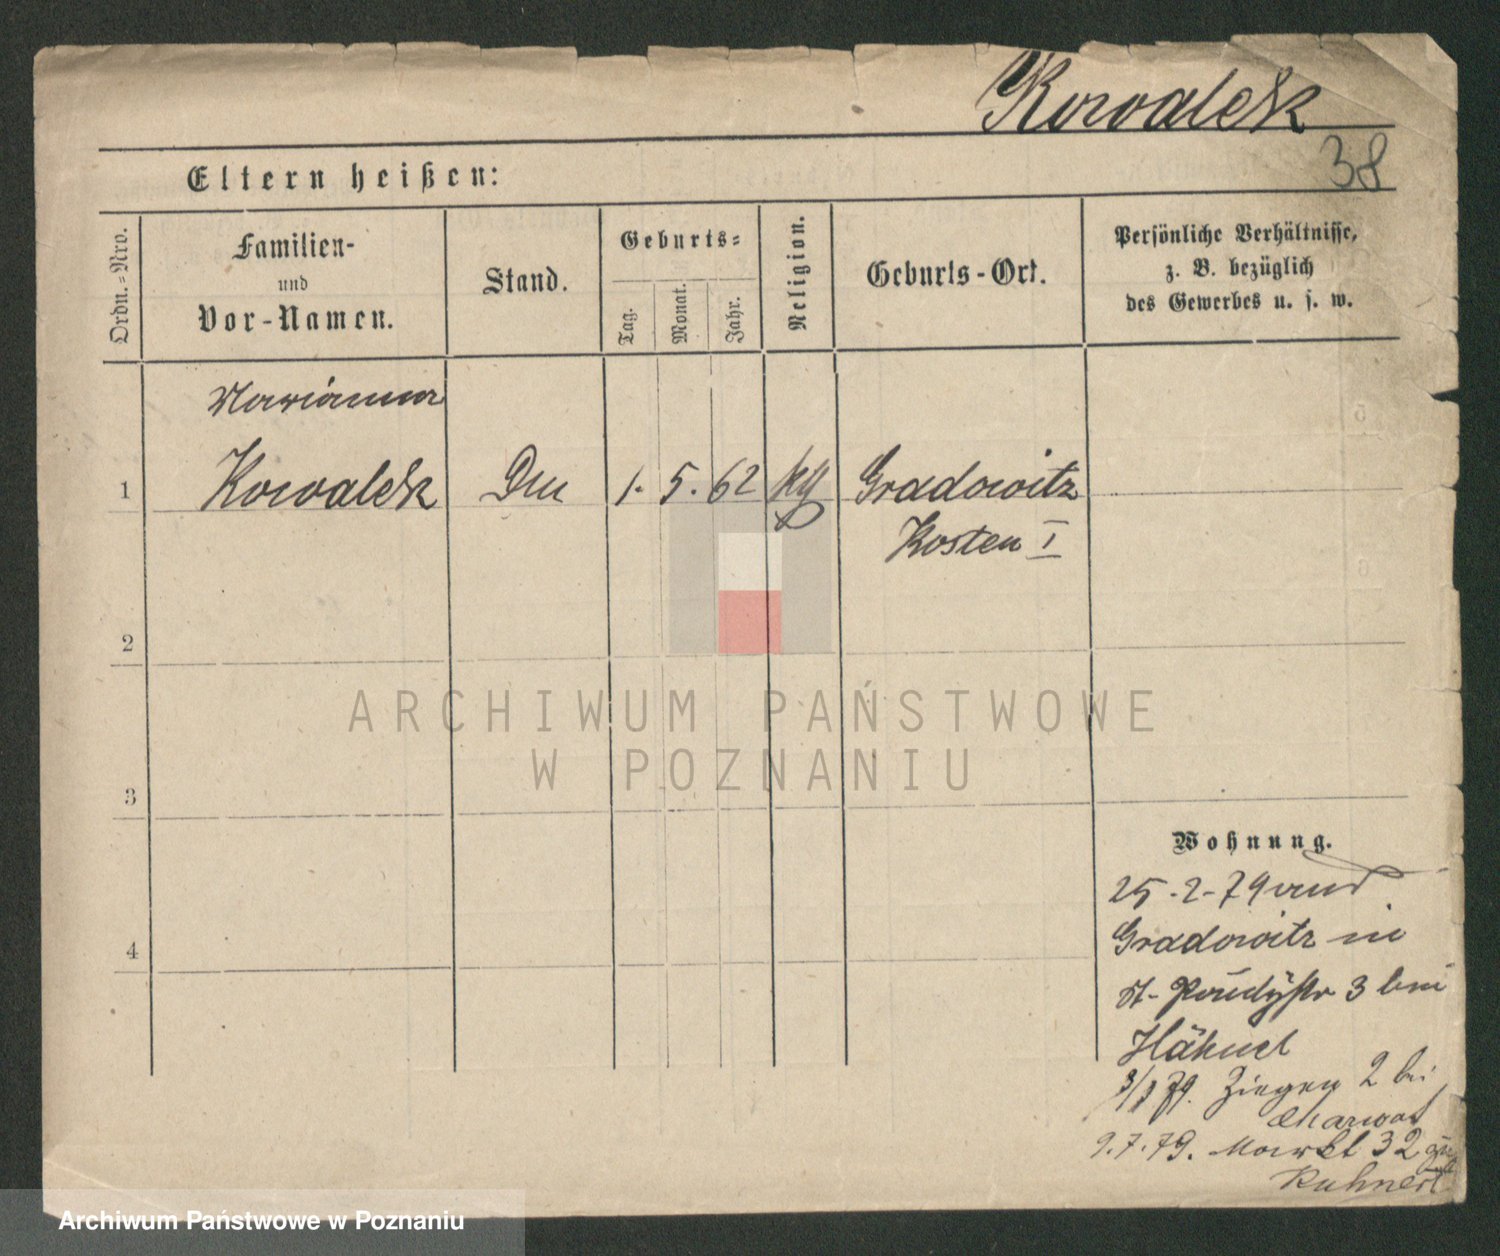 Kowalek
38
Eltern heißen:
Ordn.=Nro.
Familien-
und
Vor-Namen.
Stand.
Geburts=
Tag.
Monat.
Jahr.
Religion.
Geburts-Ort.
Persönliche Verhältnisse,
z. B. bezüglich
des Gewerbes u. s. w.
Marianna
1 Kowalek 1. 5. 62 Gradowitz
Kosten I
2
3
4
Wohnung.
25-2-79
Gradowitz in
3 bei
79. Ziegen 2 bei
9.7.79. Markt 32
Kuhnert
ARCHIWUM PAŃSTWOWE
W POZNANIU
Archiwum Państwowe w Poznaniu